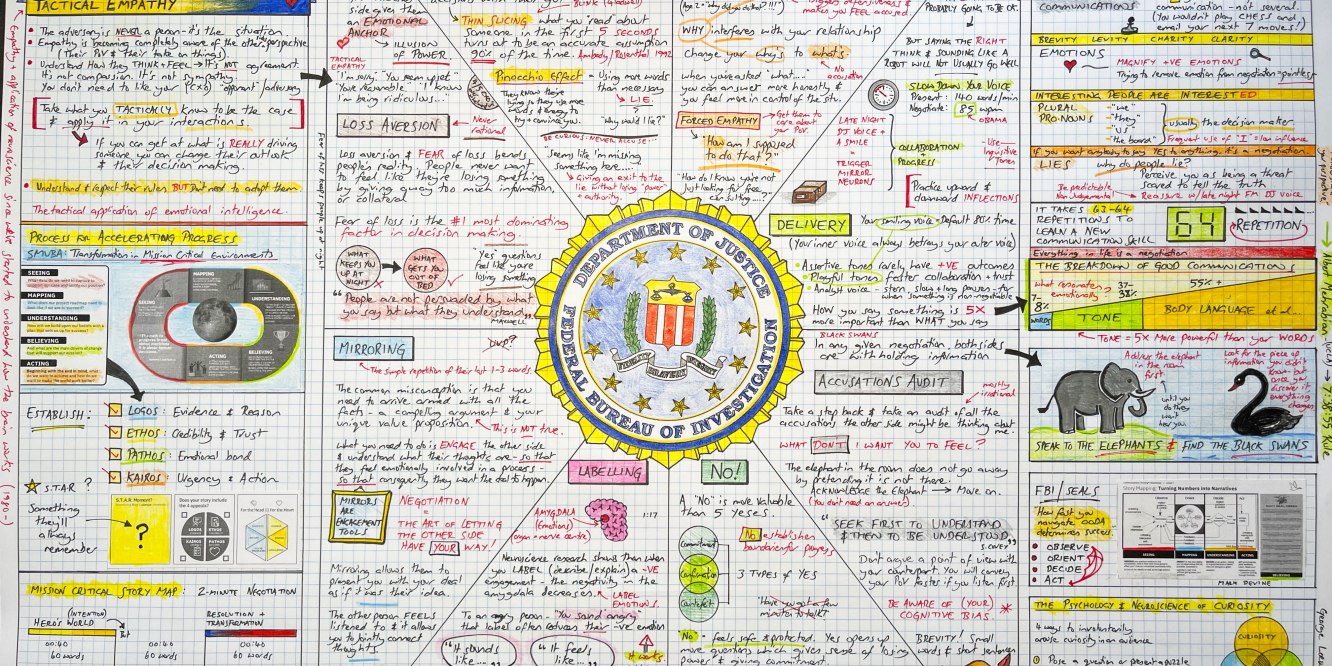 TACTICAL EMPATHY
• The adversary is NEVER a person - it's the situation.
• Empathy is becoming completely aware of the other perspective
(Their POV & their take on things)
• Understand How they THINK + FEEL → It's NOT agreement.
It's not compassion. It's not sympathy.
You don't need to like your opponent / adversary
Take what you TACTICALLY know to be the case
& apply it in your interactions.
If you can get at what is REALLY driving
someone you can change their outlook
& their decision making.
• Understand & respect their rules BUT Don't need to adopt them
The tactical application of emotional intelligence.
PROCESS FOR ACCELERATING PROGRESS
SMUBA: Transformation in Mission Critical Environments
SEEING
MAPPING
UNDERSTANDING
BELIEVING
ACTING
MAPPING
SEEING
UNDERSTANDING
ACTING
BELIEVING
ESTABLISH:
LOGOS: Evidence & Reason
ETHOS: Credibility & Trust
PATHOS: Emotional bond
KAIROS: Urgency & Action
S.T.A.R ?
Something
they'll
always
remember
S.T.A.R. Moment?
?
Does your story include
the 4 appeals?
MISSION CRITICAL STORY MAP: 2-MINUTE NEGOTIATION
(INTENTION)
HERO'S WORLD
But
RESOLUTION +
TRANSFORMATION
00:40
60 words
00:40
60 words
00:40
60 words
side gives them
an EMOTIONAL
ANCHOR
→ ILLUSION
OF POWER.
TACTICAL
EMPATHY
"I'm sorry." "You seem upset"
"You're reasonable" "I know
I'm being ridiculous..."
LOSS AVERSION
Never
rational
Loss aversion & FEAR of loss bends
people's reality. People never want
to feel like they're losing something
by giving away too much information,
or collateral
Fear of loss is the #1 most dominating
factor in decision making.
WHAT
KEEPS YOU
UP AT
NIGHT
WHAT
GETS YOU
OUT OF
BED
'Yes' questions
feel like you're
losing something
"People are not persuaded by what
you say but what they understand"
MAXWELL
MIRRORING
The simple repetition of their last 1-3 words.
The common misconception is that you
need to arrive armed with all the
facts - a compelling argument & your
unique value proposition.
This is NOT true.
What you need to do is ENGAGE the other side
& understand what their thoughts are - so that
they feel emotionally involved in a process -
so that consequently they want the deal to happen.
MIRRORS
ARE
ENGAGEMENT
TOOLS
NEGOTIATION
=
THE ART OF LETTING
THE OTHER SIDE
HAVE YOUR WAY.
Mirroring allows them to
present you with your deal
as if it was their idea.
The other person FEELS
listened to & it allows
you to jointly connect
thoughts
THIN SLICING
what you read about
Someone in the first 5 SECONDS
turns out to be an accurate assumption
90% of the time. Ambady/Rosenthal 1992
Pinocchio Effect
- Using more words
than necessary
→ LIE.
"Why would I lie?"
They know they're
lying so they use more
words & energy to
try & convince you.
BE CURIOUS. NEVER ACCUSE..
"Seems like I'm missing
something here..."
Giving an exit to the
lie without losing 'power'
& authority.
DEPARTMENT OF JUSTICE
FEDERAL BUREAU OF INVESTIGATION
FIDELITY BRAVERY INTEGRITY
LABELLING
AMYGDALA
(Emotions)
1:17
Neuroscience research shows than when
you LABEL (describe / explain) a -VE
engagement - the negativity in the
amygdala decreases.
LABEL
EMOTIONS.
To an angry person - "You sound angry"
that label often reduces their -ve emotion
"It sounds
like..."
"It feels
like..."
It works
makes you feel accused
WHY interferes with your relationship
Change your why's to what's.
No
accusation
when you're asked "what...."
you can answer more honestly &
you feel more in control of the situ.
FORCED EMPATHY
Get them to
care about
your POV.
"How am I supposed
to do that?"
"How do I know you're not
just looking for free
consulting...."
PROBABLY GOING TO BE OK.
BUT SAYING THE RIGHT
THINK & SOUNDING LIKE A
ROBOT WILL NOT USUALLY GO WELL
SLOW DOWN YOUR VOICE
Present: 140 words/min
Negotiate: 85 wpm
OBAMA
LATE NIGHT
DJ VOICE +
A SMILE
TRIGGER
MIRROR
NEURONS
COLLABORATION
+
PROGRESS
- Use
Inquisitive
Tones
Practice upward &
downward INFLECTIONS
DELIVERY
Your smiling voice = Default 80% time
(Your inner voice always betrays your outer voice)
• Assertive tones rarely have +VE outcomes
• Playful tones - faster collaboration + trust
• Analyst voice - stern, slow + long pauses - for
when something is non-negotiable
HOW you say something is 5X
more important than WHAT you say
BLACK SWANS
In any given negotiation, both sides
are with holding information
ACCUSATIONS AUDIT
mostly
irrational
Take a step back & take an audit of all the
accusations the other side might be thinking about
me.
WHAT DON'T I WANT YOU TO FEEL?
The elephant in the room does not go away
by pretending it is not there.
ACKNOWLEDGE the Elephant → Move on.
(You don't need an answer)
"SEEK FIRST TO UNDERSTAND
& THEN TO BE UNDERSTOOD"
S. COVEY
Don't argue a point of view with
your counterpart. You will convey
your POV faster if you listen first
BE AWARE OF (YOUR)
COGNITIVE BIAS.
NO!
A "No" is more valuable
than 5 yeses.
No establishes
boundaries for progress
Commitment
Confirmation
Counterfeit
3 TYPES of YES
"Have you got a few
minutes to talk?"
No - feels safe & protected. Yes opens up
more questions which gives sense of losing
power & giving commitment.
BREVITY! Small
words & short sentences
COMMUNICATIONS
communication - not several.
(You wouldn't play CHESS and
moves!)
BREVITY LEVITY CHARITY CLARITY
EMOTIONS
MAGNIFY +VE EMOTIONS
Trying to remove emotion from negotiation = pointless
INTERESTING PEOPLE ARE INTERESTED
PLURAL
PRONOUNS
- "we"
"They"
"us"
"the board"
usually the decision maker.
Frequent use of "I" = low influence
If you want anybody to say YES to anything, it's a negotiation
LIES
why do people lie?
Perceive you as being a threat
scared to tell the truth
Be predictable
Non Judgemental
→ Reassure w/ late night FM DJ voice.
IT TAKES 63-64
REPETITIONS TO
LEARN A NEW
COMMUNICATION SKILL
64
REPETITION
Everything in life is a negotiation
THE BREAKDOWN OF GOOD COMMUNICATIONS
What resonates
emotionally?
7-
8%
WORDS
37-
38%
TONE
55% +
BODY LANGUAGE et al...
TONE = 5X More powerful than your WORDS
Address the elephant
in the room
first
until you
do they
won't
hear you
Look for the piece of
information you didn't
know - but
once you
discover it,
everything
changes
SPEAK TO THE ELEPHANTS & FIND THE BLACK SWANS
FBI / SEALS
How fast you
navigate OODA
determines success.
• OBSERVE
• ORIENT
• DECIDE
• ACT
Story Mapping: Turning Numbers into Narratives
SEEING
MAPPING
UNDERSTANDING
ACTING
BELIEVING
MARK DEVINE
THE PSYCHOLOGY & NEUROSCIENCE OF CURIOSITY
4 ways to involuntarily
arouse curiosity in an audience
① Pose a question or present a puzzle
CURIOSITY
→ Albert Mehrabian (UCLA) → 7:38:55 Rule